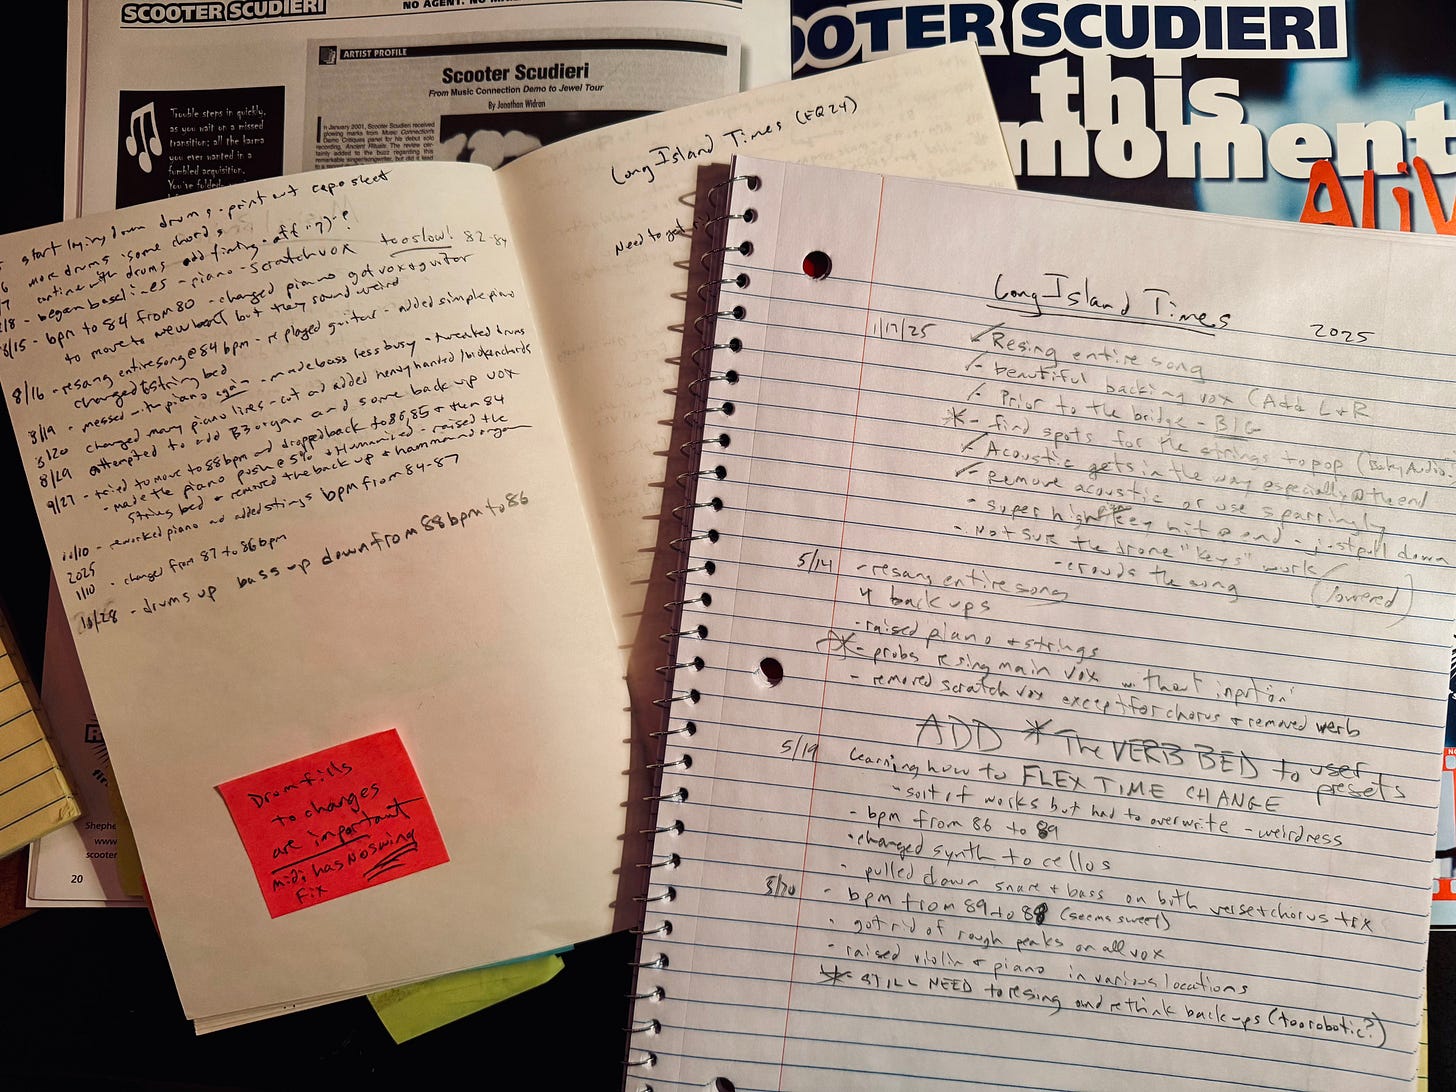 SCOOTER SCUDIERI
NO AGENT. NO
ARTIST PROFILE
Scooter Scudieri
From Music Connection Demo to Jewel Tour
By Jonathan Widran
In January 2001, Scooter Scudieri received
glowing marks from Music Connection's
Demo Critiques panel for his debut solo
recording, Ancient Rituals. The review
Trouble steps in quickly,
as you wait on a missed
transition; all the karma
you ever wanted in a
fumbled acquisition.
You're folded
OOTER SCUDIERI
this
moment
Aliv
start laying down drums - print out capo sheet
more drums some chords
continue with drums add
/8 - began baselines - piano - scratch vox too slow! 82-84
8/15 - bpm to 84 from 80 - changed piano got vox + guitar
to move to new beat but they sound weird
8/16 - resang entire song @ 84 bpm - replayed guitar - added simple piano
changed string bed
8/19 - messed with piano again - made bass less busy - tweaked drums
8/20 changed many piano lines - cut and added heavy handed / broken chords
8/29 attempted to add B3 organ and some back up vox
9/27 - tried to move to 88 bpm and dropped back to 86, 85 + then 84
- made the piano push @ 54% + Humanized - raised the
string bed + removed the back up + hammond organ
11/10 - reworked piano and added strings bpm from 84-87
2025
1/10 - changed from 87 to 86 bpm
10/28 - drums up bass up down from 88 bpm to 86
Drum fills
to changes
are important
midi has No swing
Fix
20
Shephe
www
scooter
Long Island Times (EQ24)
Need to get
Long Island Times 2025
1/17/25 Resing entire song
- beautiful backing vox (Add L + R
- Prior to the bridge - BIG
* - find spots for the strings to pop (Baby Audio
Acoustic gets in the way especially @ the end
Remove acoustic or use sparringly
- super high key hit @ end - just pull down
- Not sure the drone "keys" work
- crowds the song (lowered)
5/14 - resang entire song
4 back ups
- raised piano + strings
* - probs resing main vox without
- removed scratch vox except for chorus + removed verb
ADD * The VERB BED to user presets
5/19 Learning how to FLEX TIME CHANGE
- sort of works but had to overwrite - weirdness
- bpm from 86 to 89
- changed synth to cellos
- pulled down snare + bass on both verse + chorus trx
5/20 - bpm from 89 to 88 (seems sweet)
- got rid of rough peaks on all vox
- raised violin + piano in various locations
* STILL NEED to resing and rethink back ups (too robotic?)